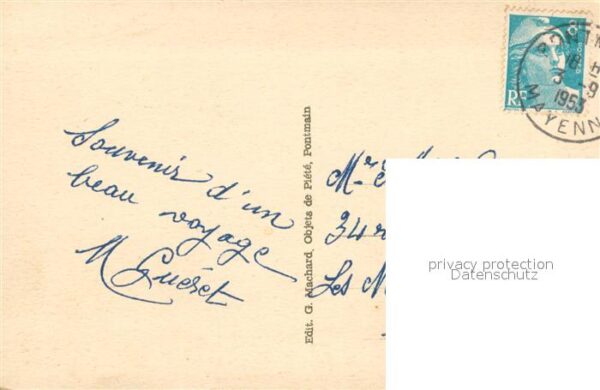 Souvenir d'un
beau voyage
M Guéret
Edit. G. Machard, Objets de Piété, Pontmain
Mr
34
Les
RF
PONTM
18 H
3 -9
1953
MAYENN
privacy protection
Datenschutz